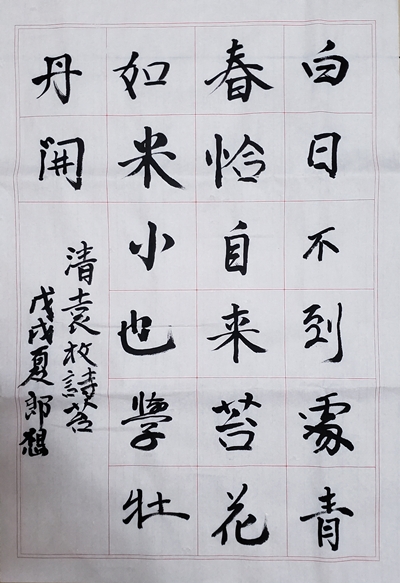 白日不到處青
春恰自來苔花
如米小也學牡
丹開
清袁枚詩苔
戊戌夏郎